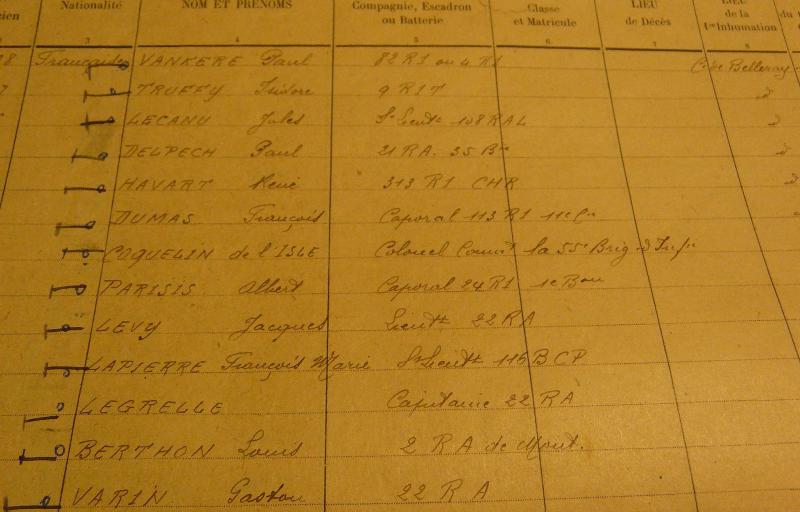 Nationalité NOM ET PRÉNOMS Compagnie, Escadron ou Batterie Classe et Matricule LIEU de Décès LIEU de la 1re Inhumation
3 4 5 6 7 8
Française VANKERE Paul 82 RI ou 4 RI Cre de Belleray
TRUFFY Isidore 9 RIT d
LECANU Jules S/Lieutt 108 RAL d
DELPECH Paul 21 RA. 35 Bie d
HAVART René 313 RI CHR d
DUMAS François Caporal 113 RI 11e Cie
COQUELIN de l'ISLE Colonel Commt la 55e Brig. d'Infie
PARISIS Albert Caporal 24 RI 1e Bon
LEVY Jacques Lieutt 22 RA
LAPIERRE François Marie S/Lieutt 116 BCP
LEGRELLE Capitaine 22 RA
BERTHON Louis 2 RA de Mont.
VARIN Gaston 22 RA